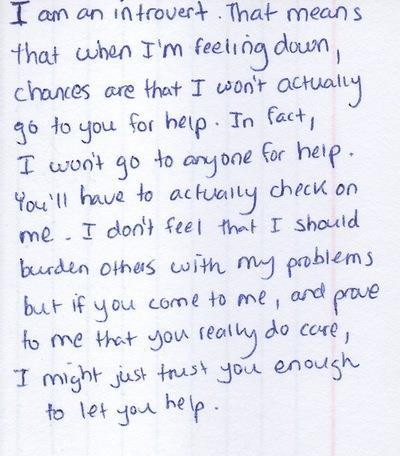 I am an introvert. That means
that when I'm feeling down,
chances are that I won't actually
go to you for help. In fact,
I won't go to anyone for help.
You'll have to actually check on
me. I don't feel that I should
burden others with my problems
but if you come to me, and prove
to me that you really do care,
I might just trust you enough
to let you help.